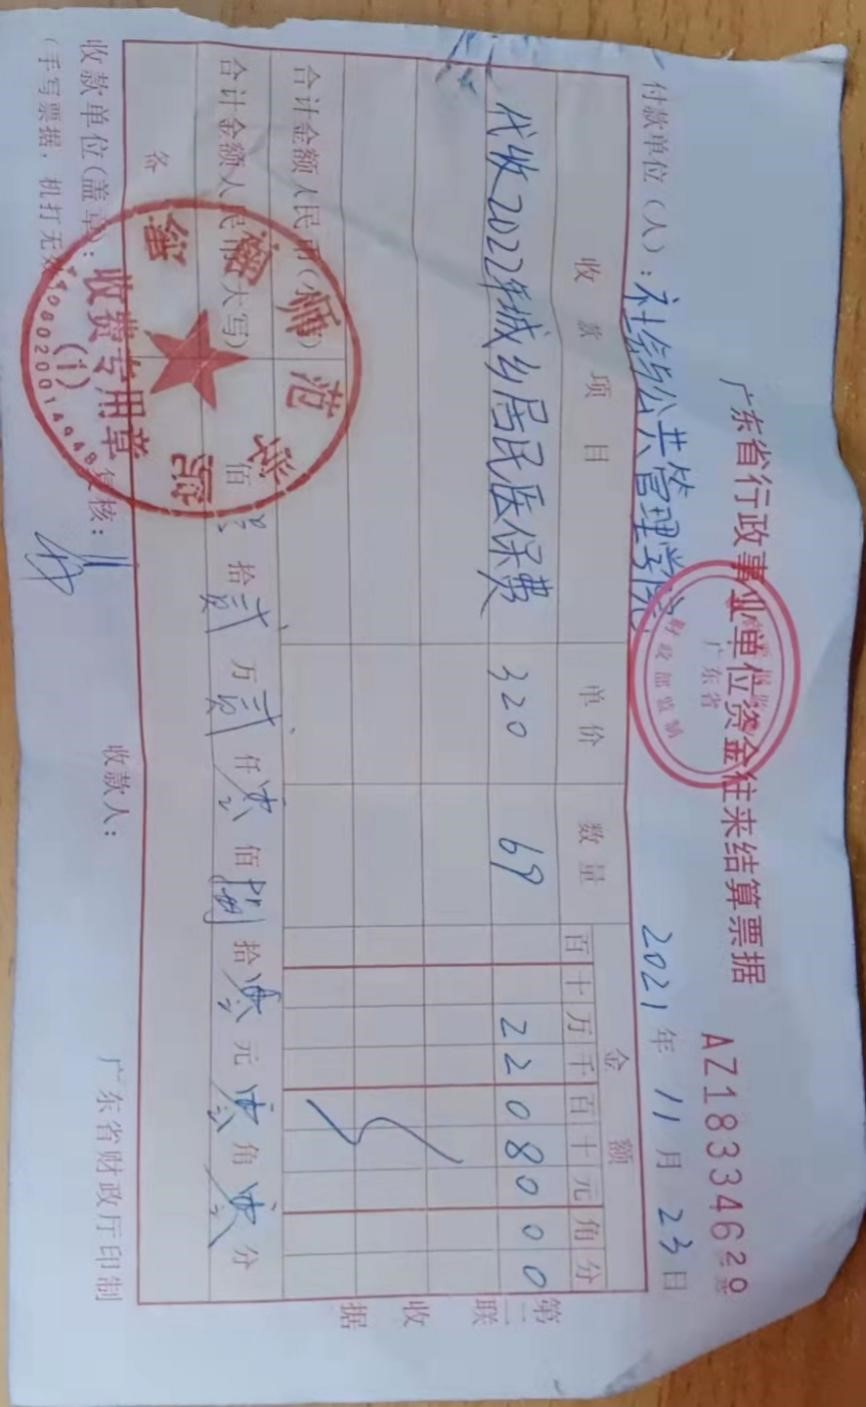 广东省行政事业单位资金往来结算票据
广东省
财政部监制
AZ18334620
付款单位(人):社会与公共管理学院 2021年11月23日
收款项目 单价 数量 金额
百十万千百十元角分
代收2022年城乡居民医保费 320 69 2208000
合计金额人民币(小写)
合计金额人民币(大写) 佰 拾贰万贰仟零佰捌拾零元零角零分
备
收款单位(盖章): 复核: 收款人: 广东省财政厅印制
(手写票据,机打无效
第二联 收据
岭南师范学院
收费专用章
(1)